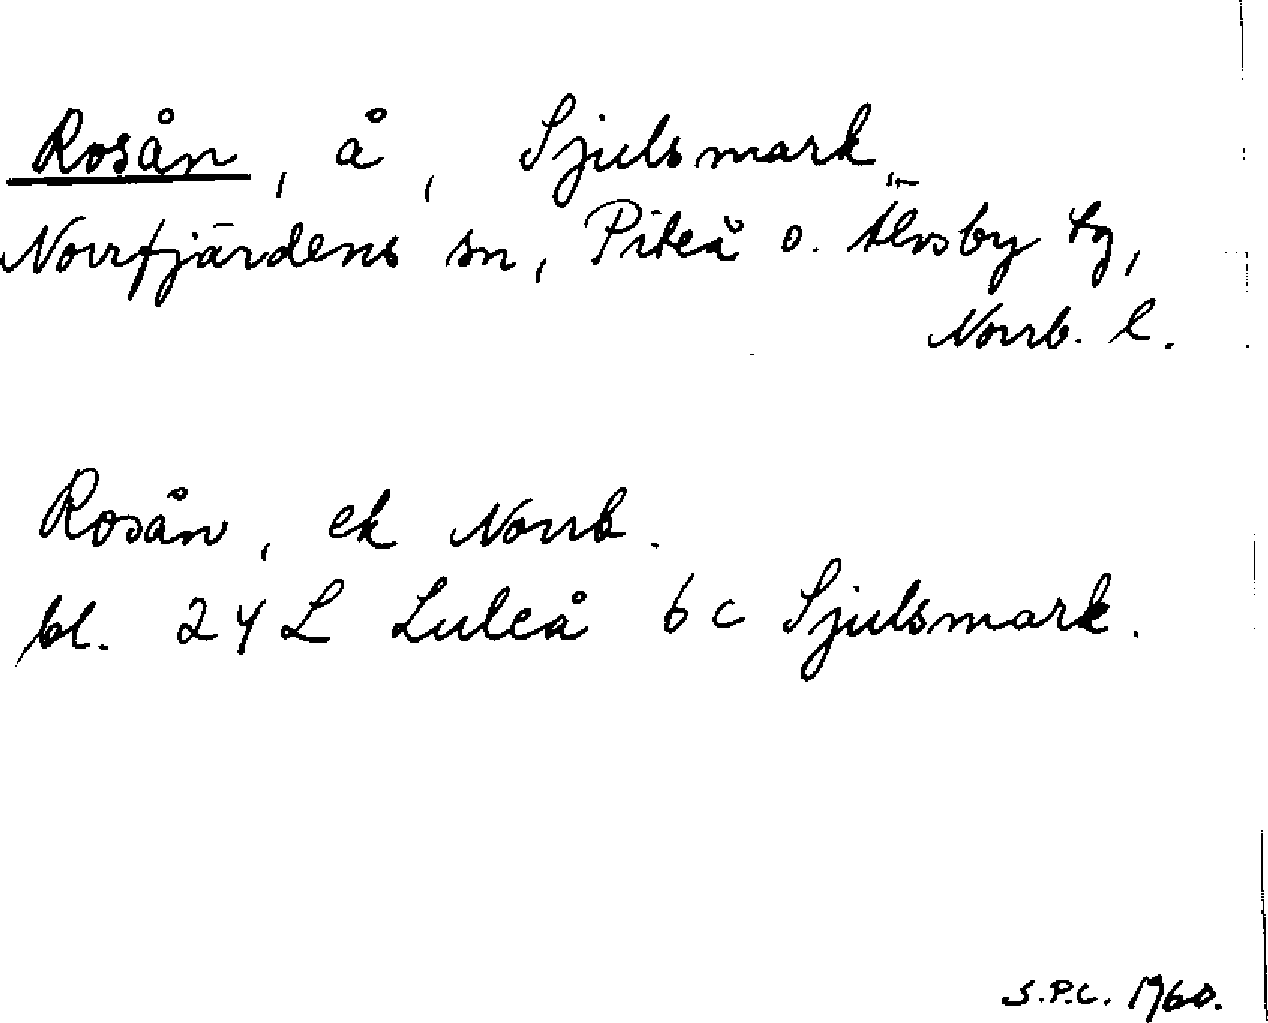 Rosån, å, Sjulsmark
Norrfjärdens sn, Piteå o. Älvsby tg,
Norrb. l.
Rosån, ek Norrb.
bl. 24 L Luleå 6c Sjulsmark.
S.P.C. 1960.